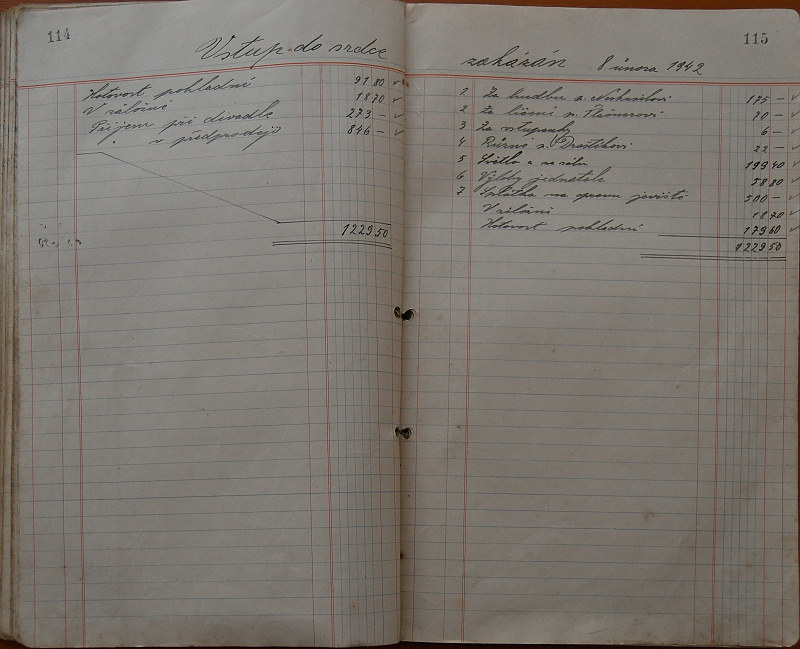 114
Vstup do srdce
Hotovost pokladní 91 80
V záložně 18 70
Příjem při divadle 273 –
v předprodeji 846 –
1229 50
115
zakázán 8 února 1942
1 Za hudbu p. 175 –
2 Za líčení p. 70 –
3 Za vstupenky 6 –
4 Různé p. Droštíkovi 22 –
5 Světlo a na sálu 199 40
6 Výlohy jednatele 58 80
7 Splátka na opravu jeviště 500 –
V záložně 18 70
Hotovost pokladní 179 60
1229 50